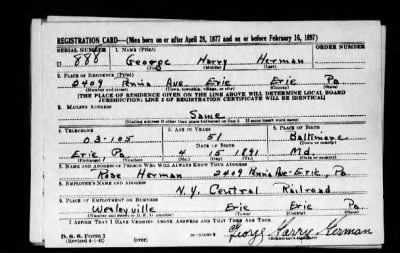 REGISTRATION CARD—(Men born on or after April 28, 1877 and on or before February 16, 1897)
SERIAL NUMBER 1. NAME (Print) ORDER NUMBER
U 888 George Harry Herman
(First) (Middle) (Last)
2. PLACE OF RESIDENCE (Print)
2409 Penna Ave. Erie Erie Pa
(Number and street) (Town, township, village, or city) (County) (State)
[THE PLACE OF RESIDENCE GIVEN ON THE LINE ABOVE WILL DETERMINE LOCAL BOARD
JURISDICTION; LINE 2 OF REGISTRATION CERTIFICATE WILL BE IDENTICAL]
3. MAILING ADDRESS
Same
[Mailing address if other than place indicated on line 2. If same insert word same]
4. TELEPHONE 5. AGE IN YEARS 6. PLACE OF BIRTH
03-105 51 Baltimore
DATE OF BIRTH (Town or county)
Erie, Pa. 4 15 1891 Md.
(Exchange) (Number) (Mo.) (Day) (Yr.) (State or country)
7. NAME AND ADDRESS OF PERSON WHO WILL ALWAYS KNOW YOUR ADDRESS
Rose Herman 2409 Penna Ave-Erie, Pa.
8. EMPLOYER'S NAME AND ADDRESS
N.Y. Central Railroad
9. PLACE OF EMPLOYMENT OR BUSINESS
Wesleyville Erie Erie Pa.
(Number and street or R. F. D. number) (Town) (County) (State)
I AFFIRM THAT I HAVE VERIFIED ABOVE ANSWERS AND THAT THEY ARE TRUE.
D. S. S. Form 1
(Revised 4-1-42) (over) George Harry Herman